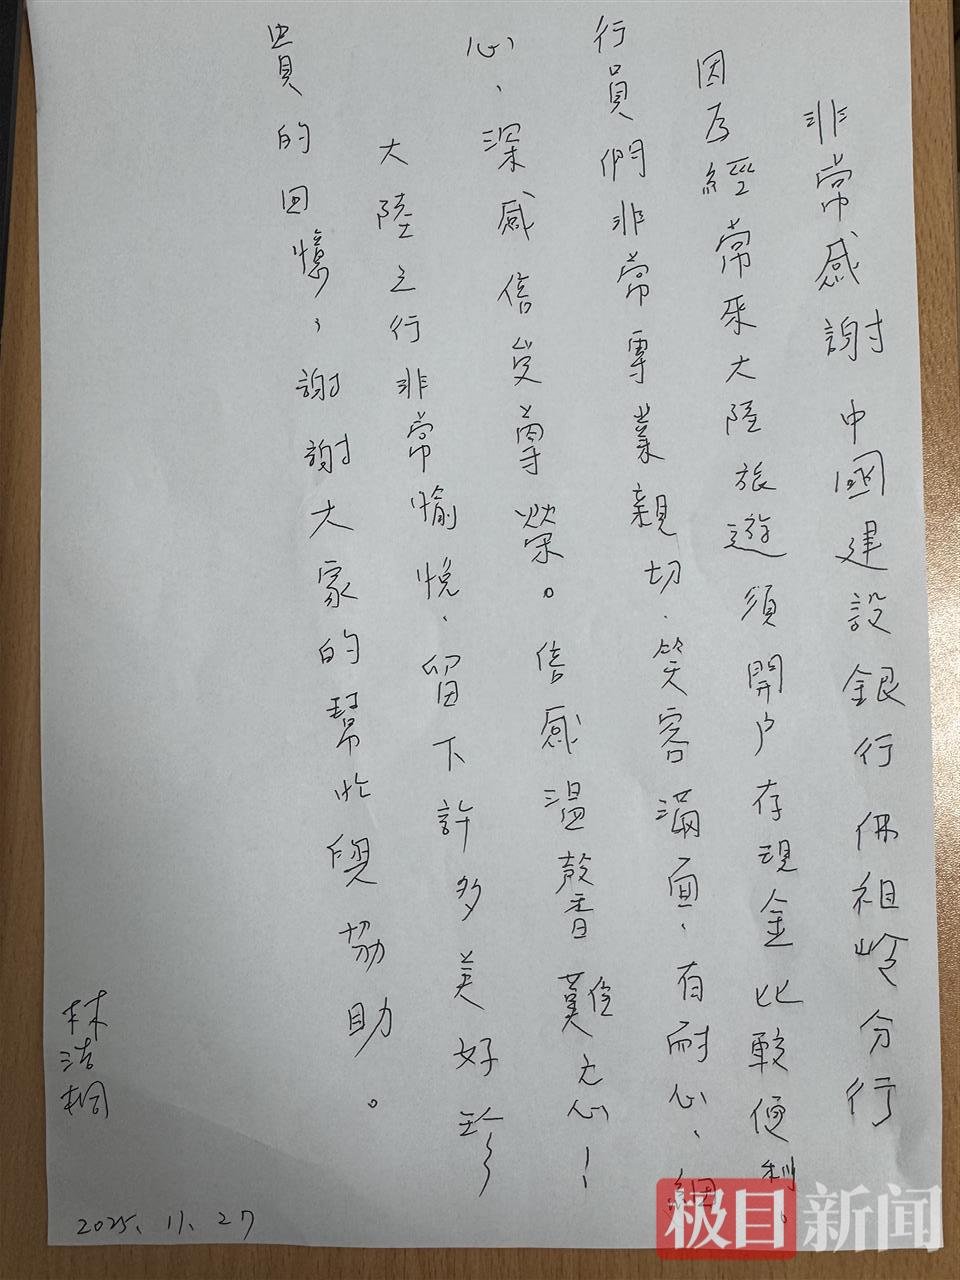 非常感謝中國建設銀行佛祖岭分行
因为經常來大陸旅遊須開戶存現金比較便利。
行員們非常專業親切、笑容滿面、有耐心、細
心、深感倍受尊榮。倍感溫馨難忘!
大陸之行非常愉悅、留下許多美好珍
貴的回憶，謝謝大家的幫忙與協助。
林浩桐
2025.11.27
极目新闻